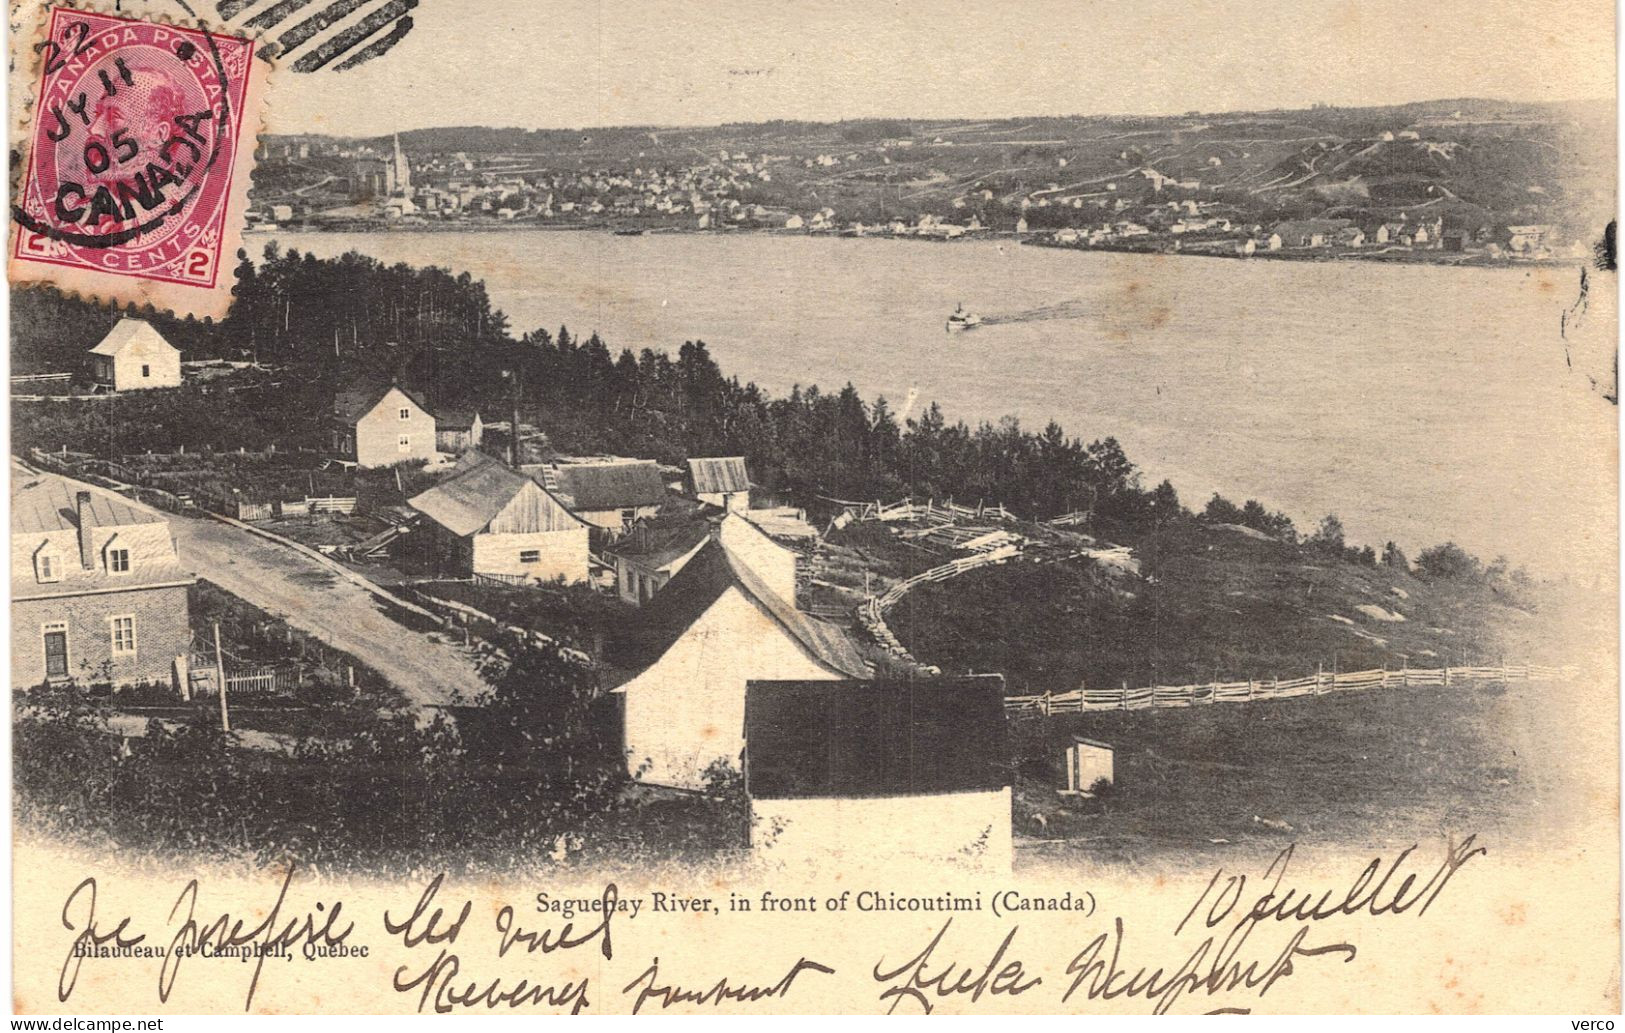 CANADA POSTAGE
22
JY 11
05
CANADA
2 CENTS 2
Saguenay River, in front of Chicoutimi (Canada)
10 Juillet
Je les vues
Bilaudeau et Campbell, Québec
Revenez souvent
delcampe.net
verco